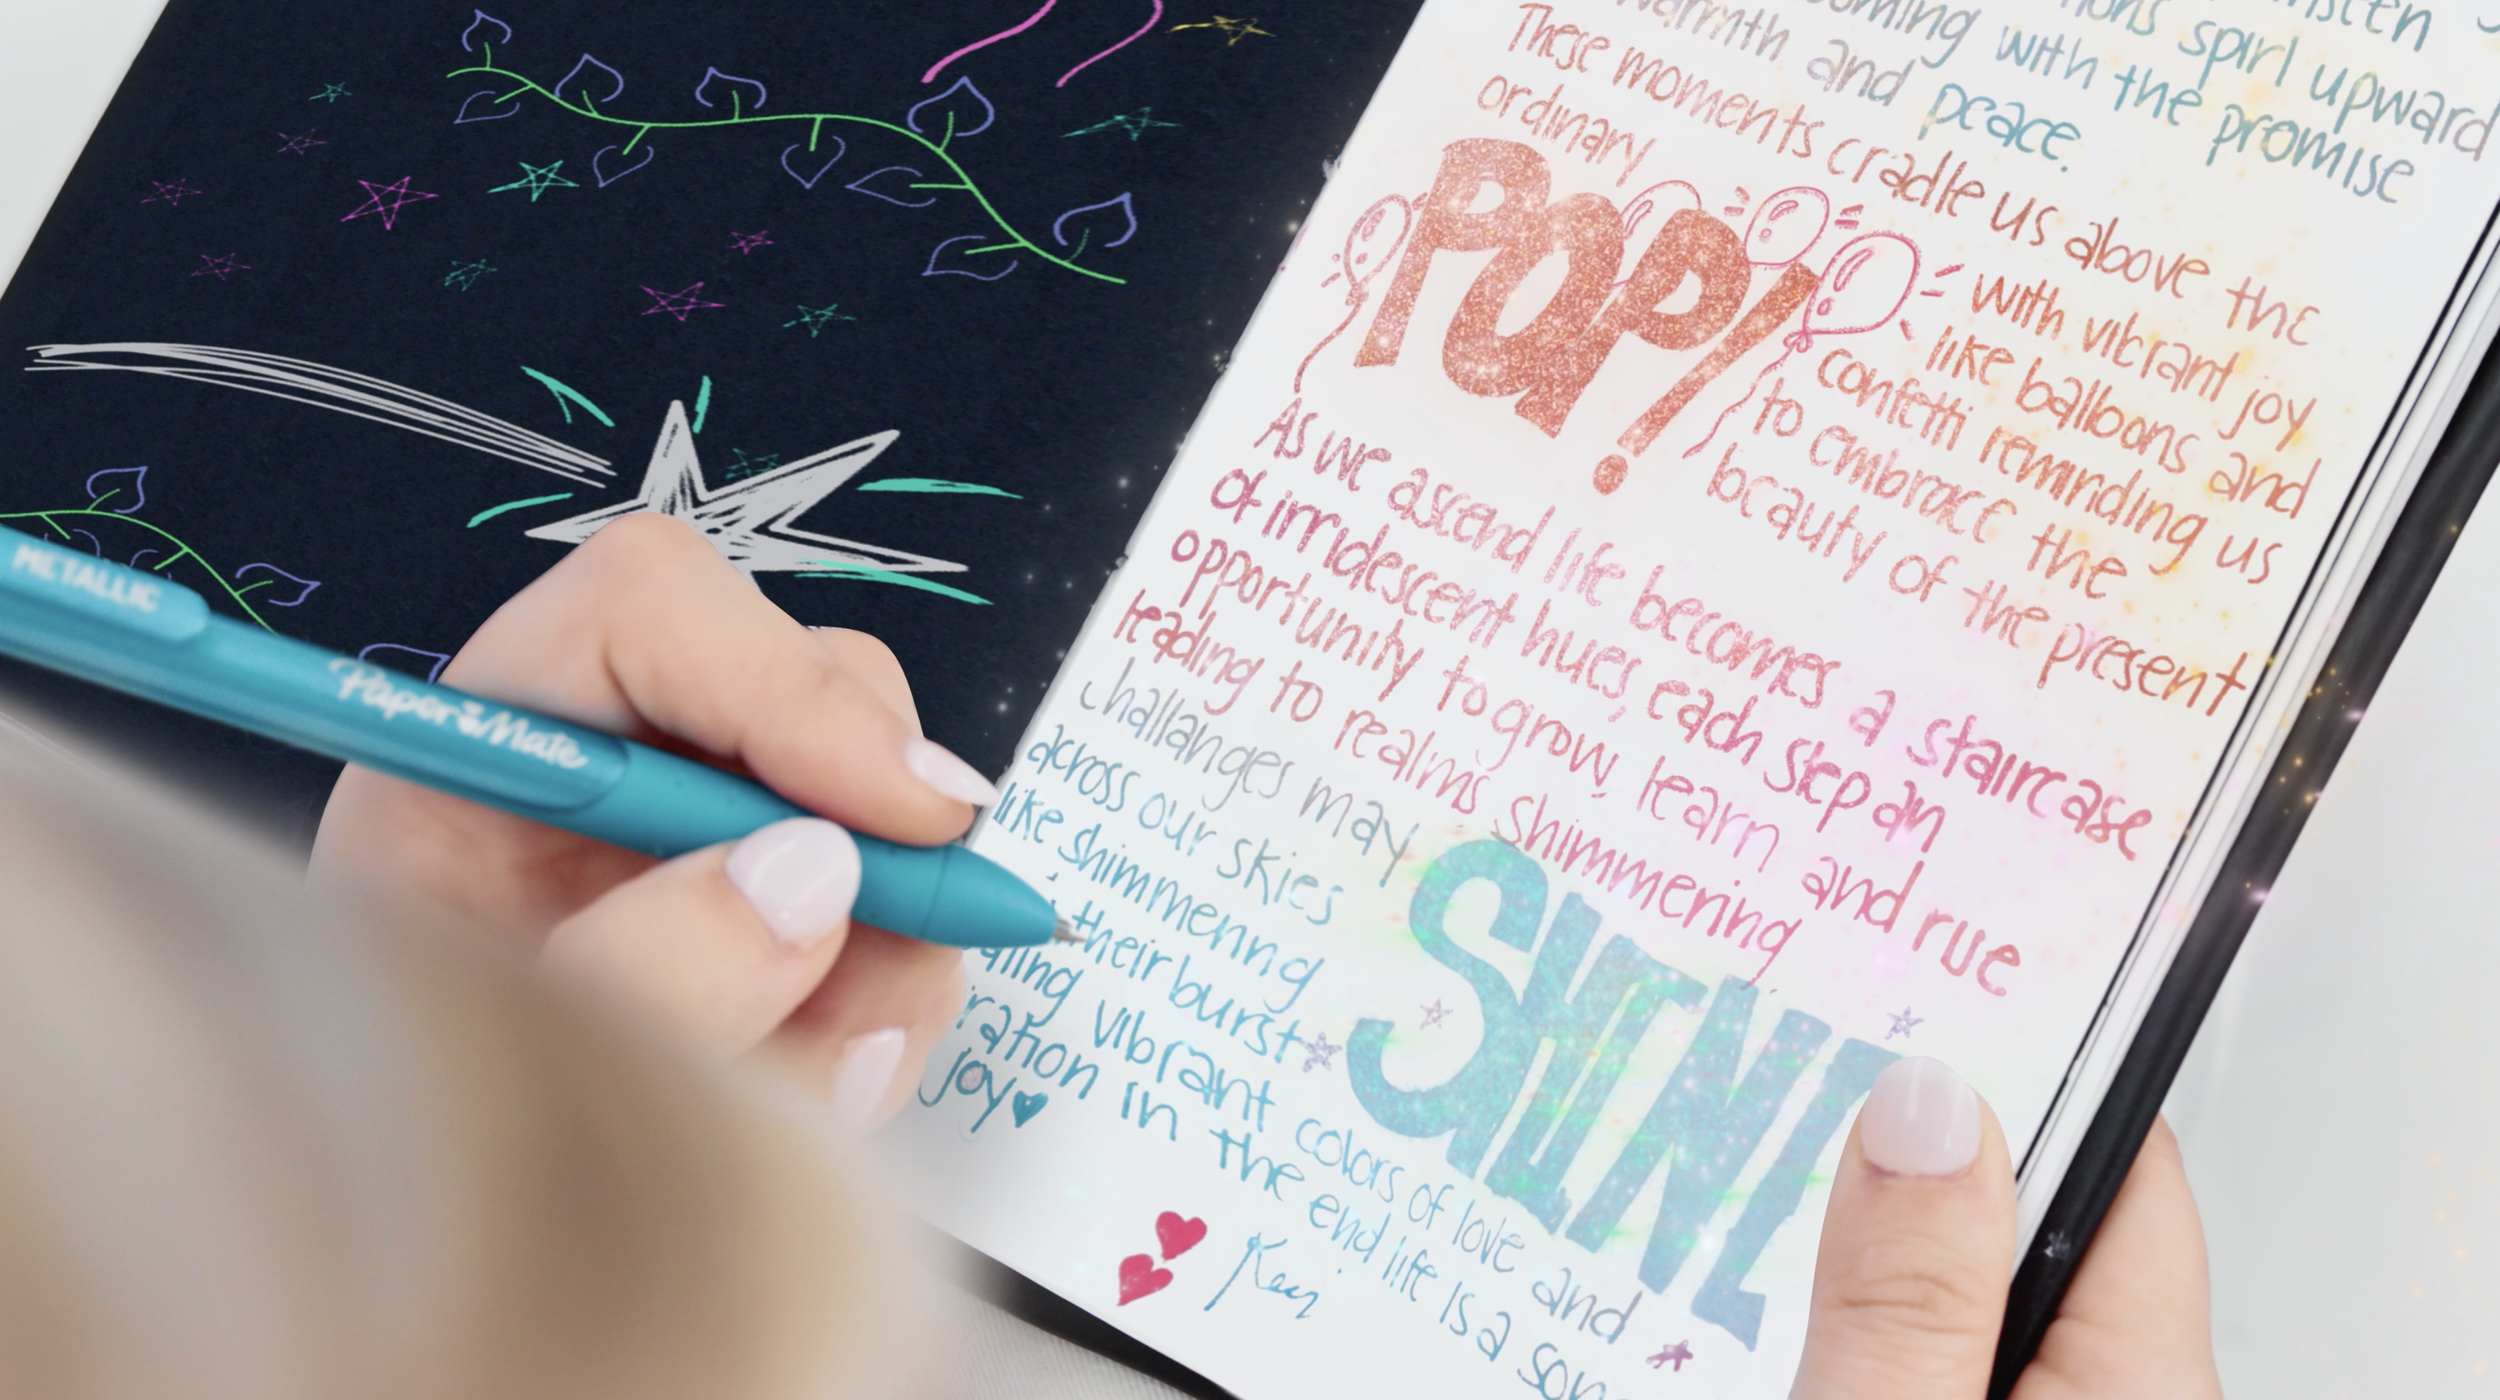 spirl upward
with the promise
warmth and peace.
These moments cradle us above the
ordinary
POP!
with vibrant joy
like balloons and
confetti reminding us
to embrace the
beauty of the present
As we ascend life becomes a staircase
of irridescent hues, each step an
opportunity to grow, learn and rise
leading to realms shimmering
challanges may
SHINE
across our skies
like shimmering
their burst
vibrant colors of love and
in the end life is a
joy
METALLIC
Paper Mate